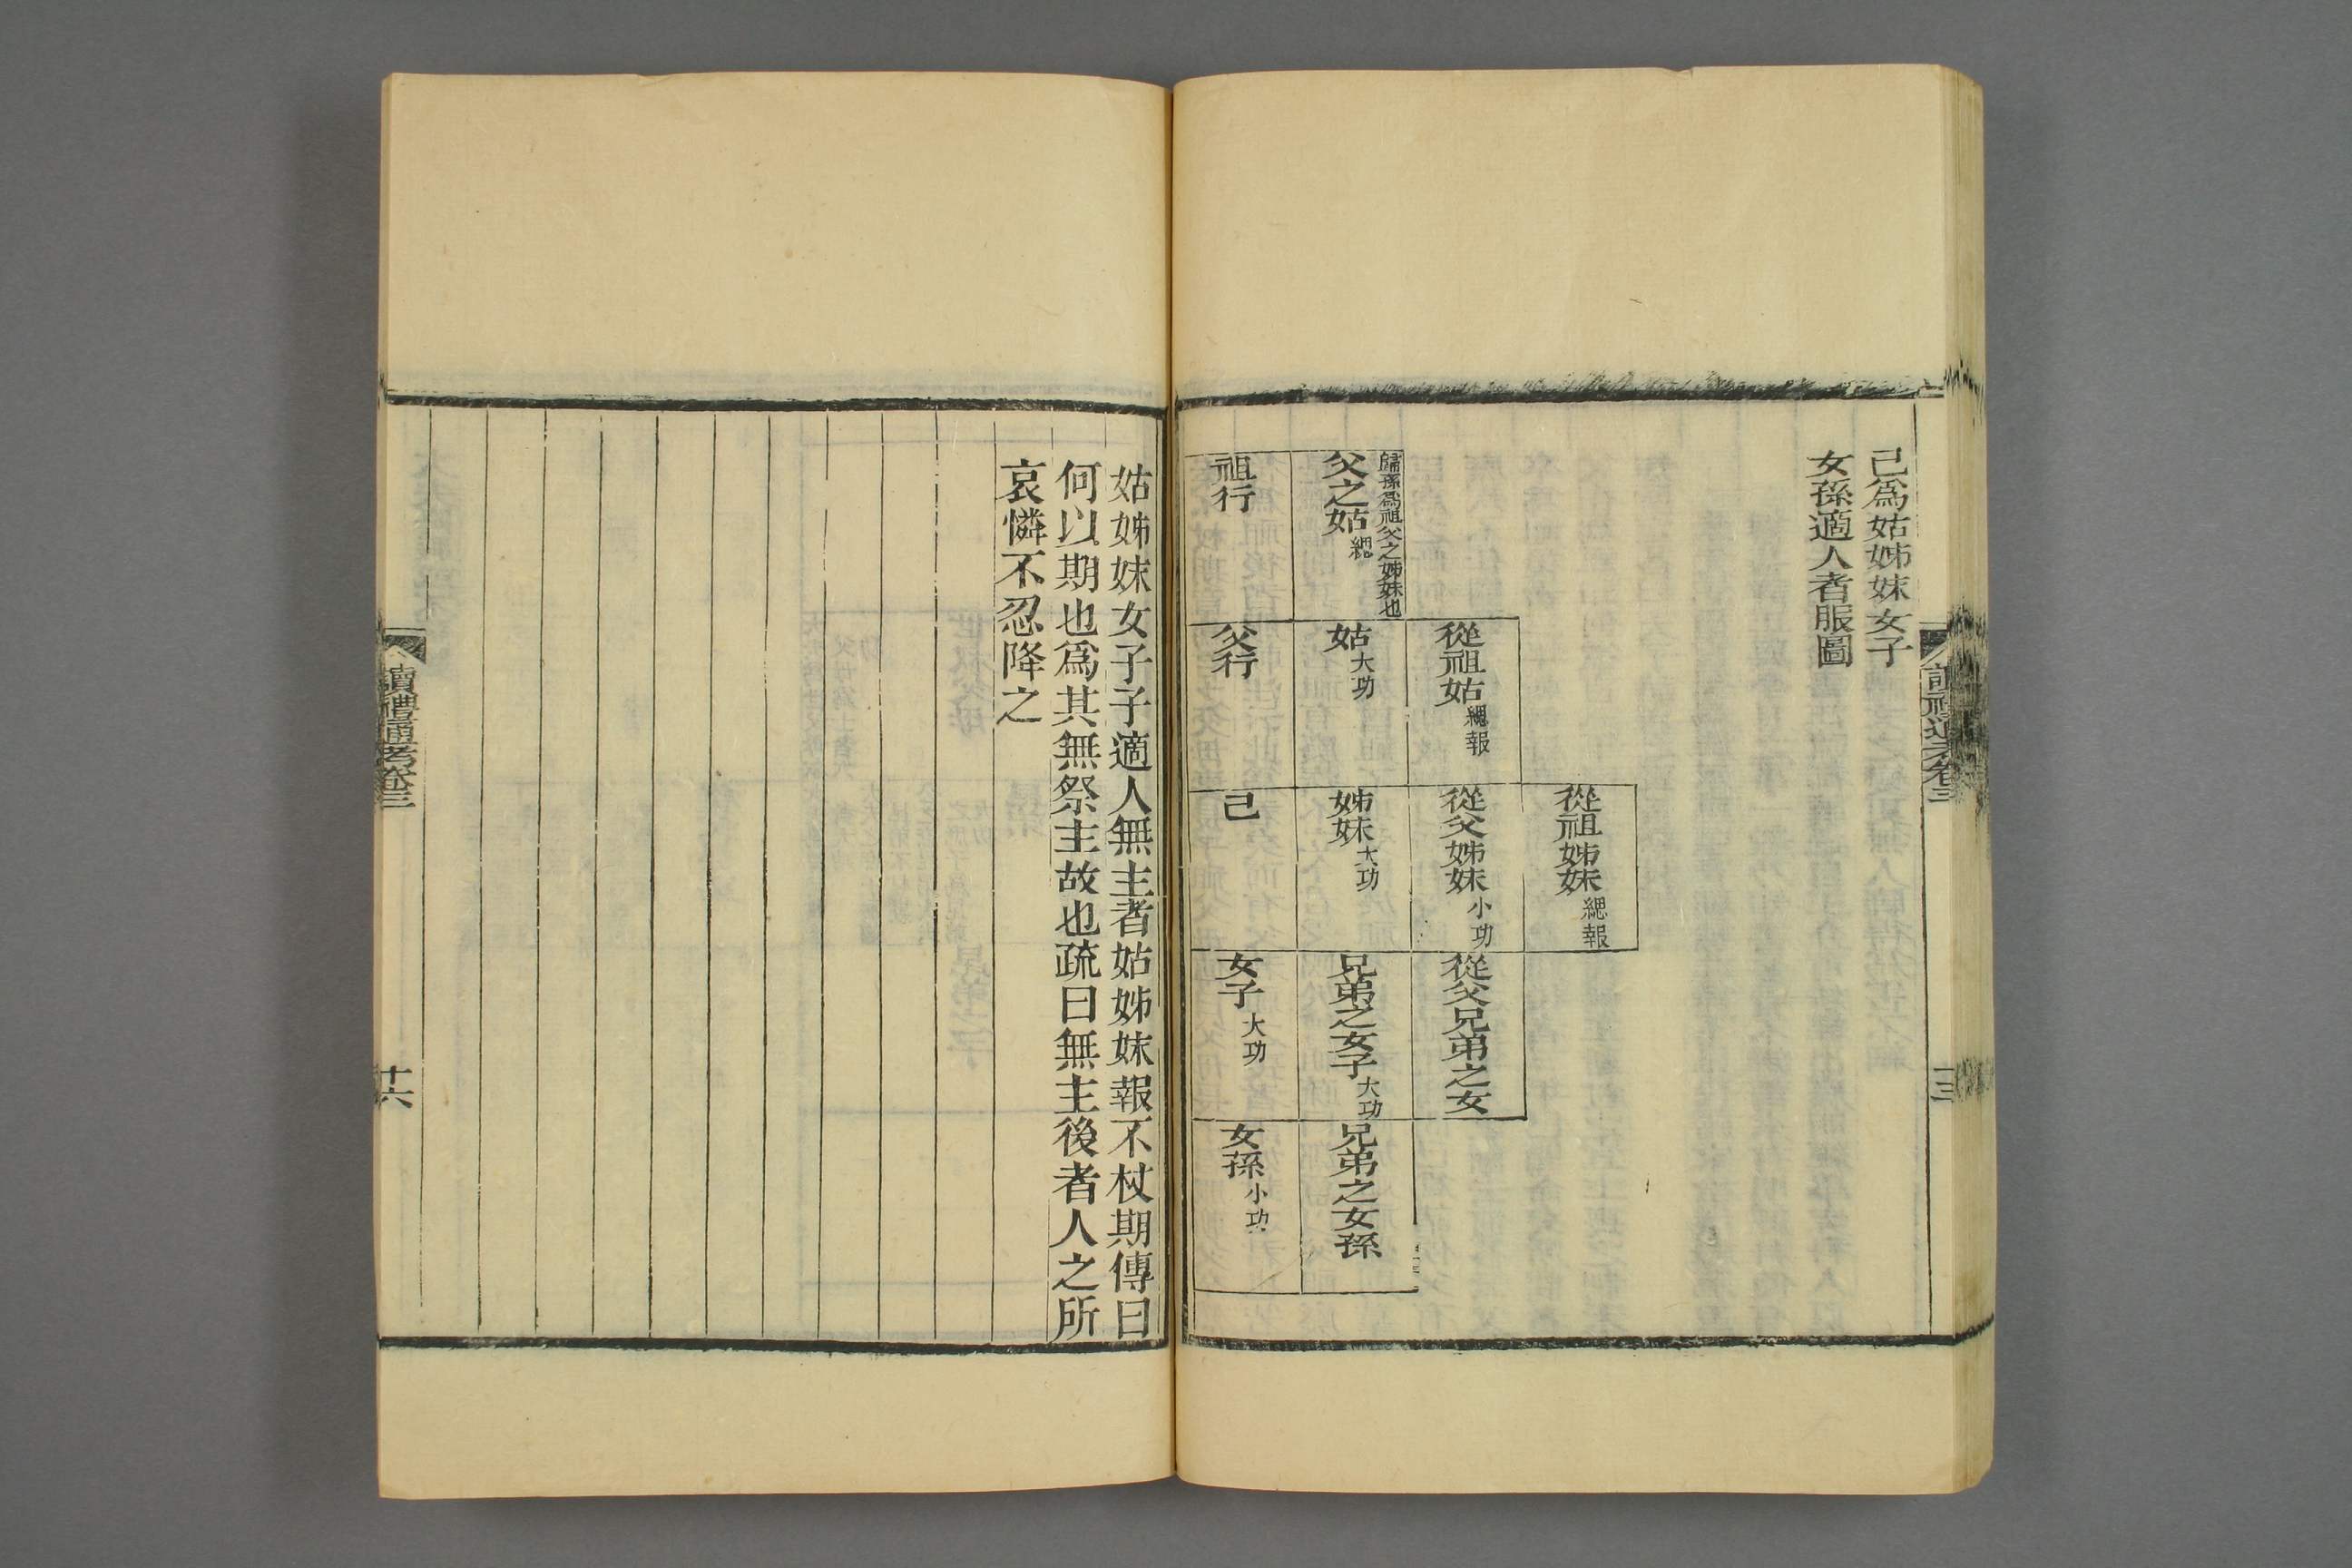 己爲姑姊妹女子
女孫適人者服圖
從祖姊妹緦報
從祖姑緦報
從父姊妹小功
從父兄弟之女
歸孫爲祖父之姊妹也
父之姑緦
姑大功
姊妹大功
兄弟之女子大功
兄弟之女孫
祖行
父行
己
女子大功
女孫小功
姑姊妹女子子適人無主者姑姊妹報不杖期傳曰
何以期也爲其無祭主故也疏曰無主後者人之所
哀憐不忍降之
讀禮通考卷三
十六